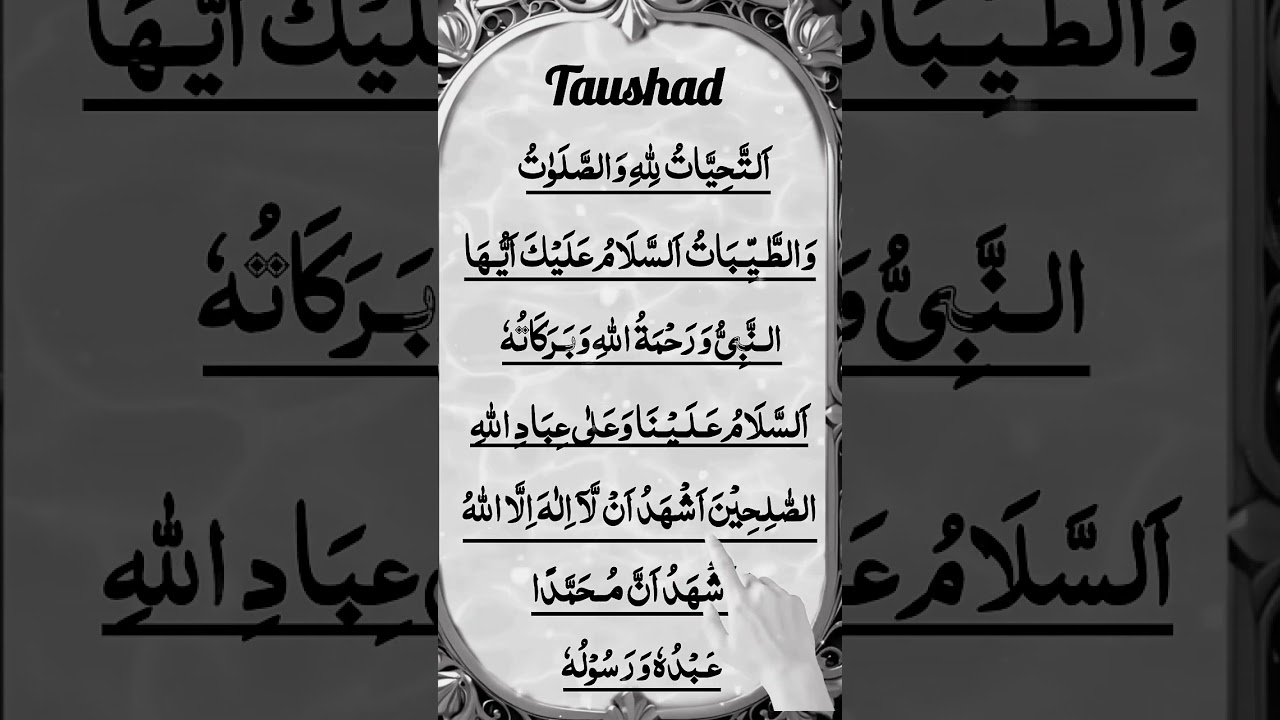 Taushad
اَلتَّحِيَّاتُ لِلّٰهِ وَالصَّلَوٰتُ
وَالطَّيِّبَاتُ اَلسَّلَامُ عَلَيْكَ اَيُّهَا
النَّبِىُّ وَرَحْمَةُ اللّٰهِ وَبَرَكَاتُهٗ
اَلسَّلَامُ عَلَيْنَا وَعَلٰى عِبَادِ اللّٰهِ
الصّٰلِحِيْنَ اَشْهَدُ اَنْ لَّآ اِلٰهَ اِلَّا اللّٰهُ
شْهَدُ اَنَّ مُحَمَّدًا
عَبْدُهٗ وَرَسُوْلُهٗ